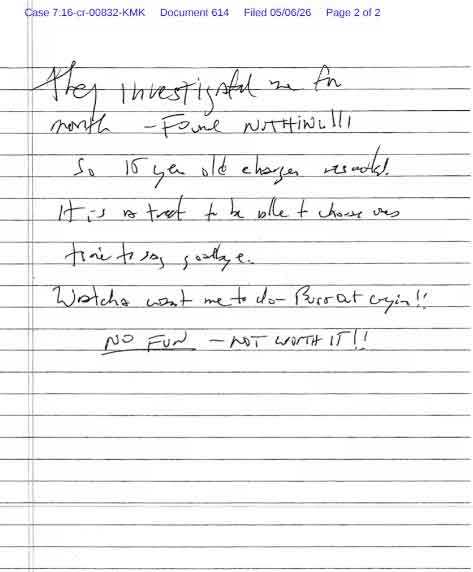 Case 7:16-cr-00832-KMK Document 614 Filed 05/06/26 Page 2 of 2
They investigated me for
month - Found NOTHING!!!
So 15 year old charges
It is a treat to be able to choose
time to say goodbye.
Watcha want me to do - Burst out cryin!!
NO FUN - NOT WORTH IT!!